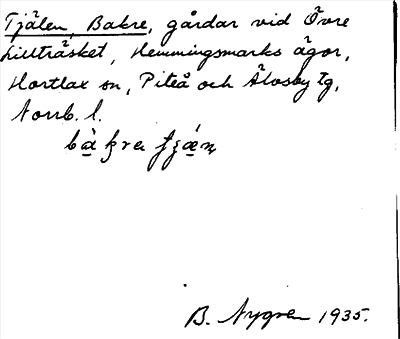 Tjälen, Bakre, gårdar vid Övre
Lillträsket, Hemmingsmarks ägor,
Hortlax sn, Piteå och Älvsby tg,
Norrb. l.
B. Nygren 1935.